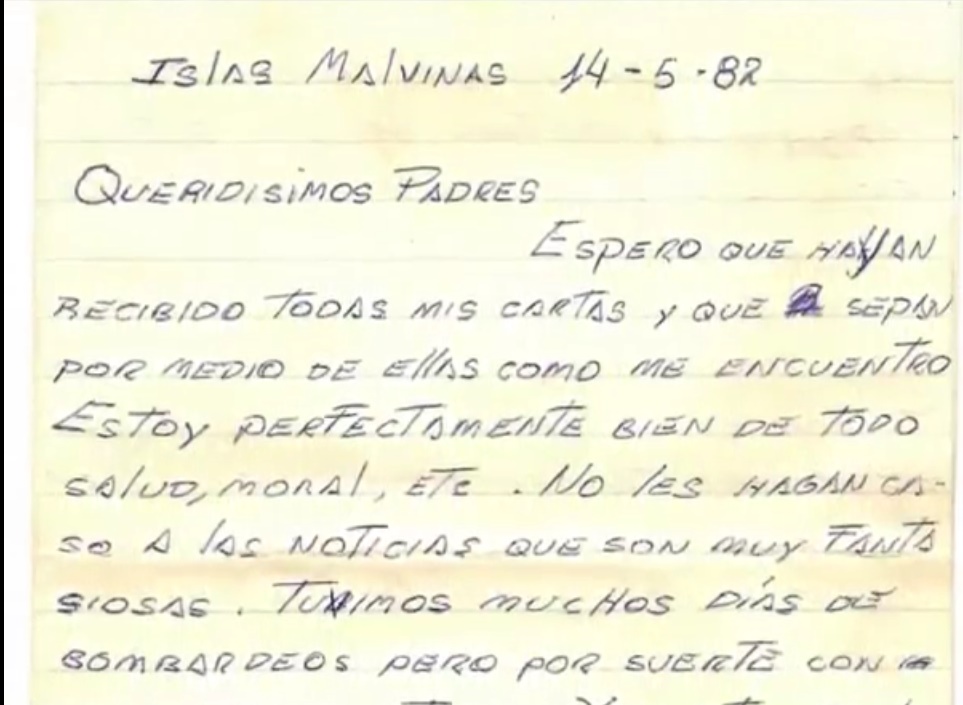 Islas Malvinas 14-5-82
Queridisimos Padres
Espero que hayan
recibido todas mis cartas y que sepan
por medio de ellas como me encuentro
Estoy perfectamente bien de todo
salud, moral, etc. No les hagan ca-
so a las noticias que son muy fanta
siosas. Tuvimos muchos días de
bombardeos pero por suerte con